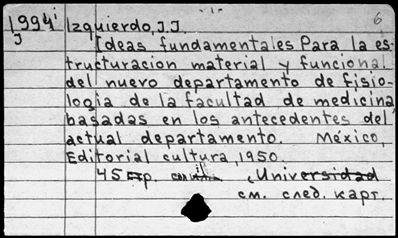 6
1994 Izquierdo, J.J.
J Ideas fundamentales Para la es-
tructuracion material y funcional
del nuevo departamento de fisio-
logia de la facultad de medicina
basadas en los antecedentes del
actual departamento. México,
Editorial cultura, 1950.
45 p. Universidad
см. след. карт.